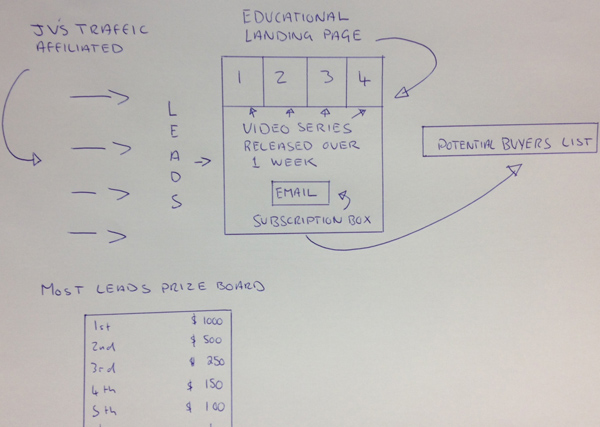 JV'S TRAFFIC
AFFILIATED
EDUCATIONAL
LANDING PAGE
LEADS
1 2 3 4
VIDEO SERIES
RELEASED OVER
1 WEEK
EMAIL
SUBSCRIPTION BOX
POTENTIAL BUYERS LIST
MOST LEADS PRIZE BOARD
1st $ 1000
2nd $ 500
3rd $ 250
4th $ 150
5th $ 100